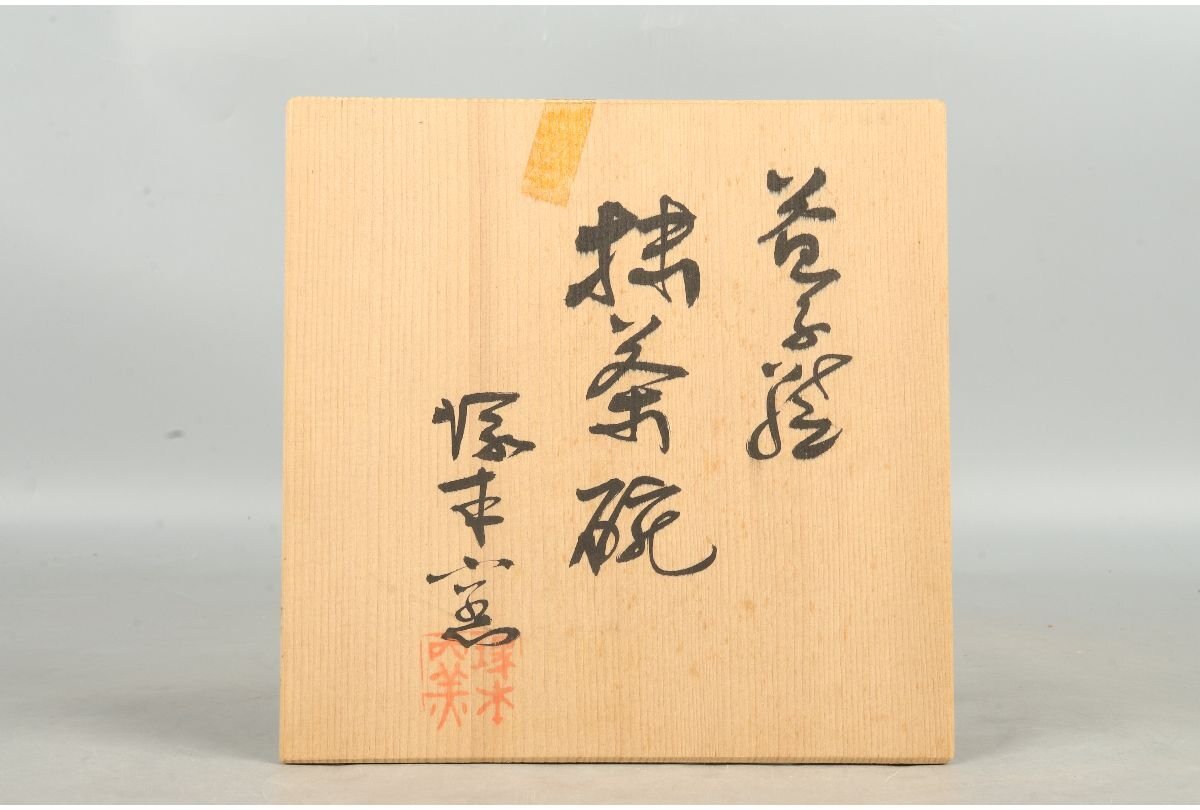 益子焼
抹茶碗
塚本窯
塚本
の美